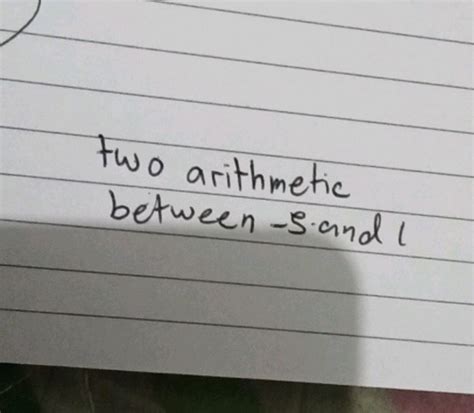 two arithmetic
between -5 and 1